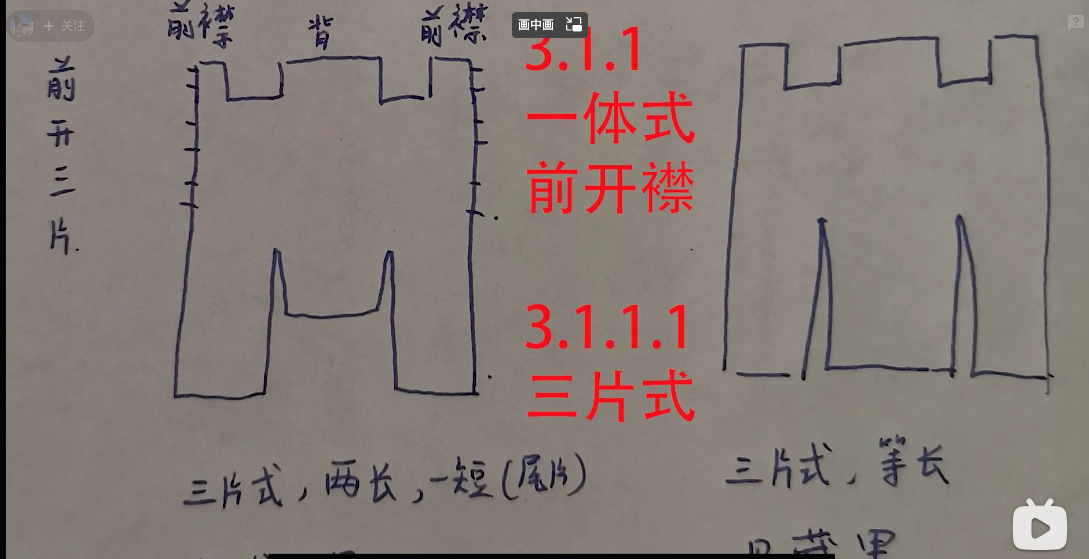 + 关注
画中画
?
前襟 背 前襟
前开三片.
3.1.1
一体式
前开襟
3.1.1.1
三片式
三片式，两长，一短(尾片)
三片式，等长